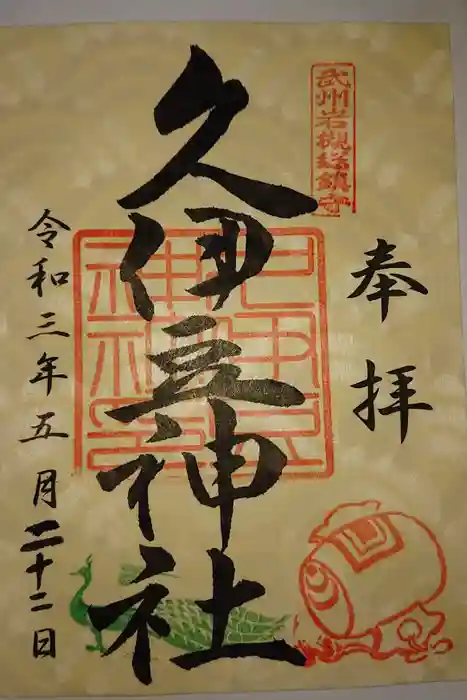 武州岩槻総鎮守
奉拝
久伊豆神社
令和三年五月二十二日